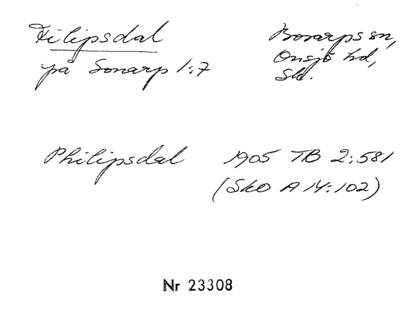 Filipsdal
på Sonarp 1:7
Bonarps sn,
Onsjö hd,
Sk.
Philipsdal 1905 TB 2:581
(Sko A 14:102)
Nr 23308